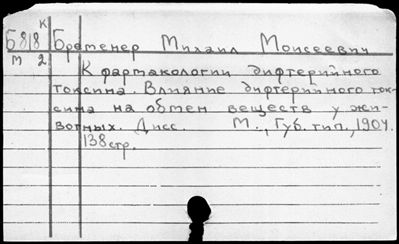 К
Б 818 Бременер Михаил Моисеевич
М 2
К фармакологии дифтерийного
токсина. Влияние дифтерийного ток-
сина на обмен веществ у жи-
вотных. Дисс. М., Губ. тип., 1904.
138 стр.